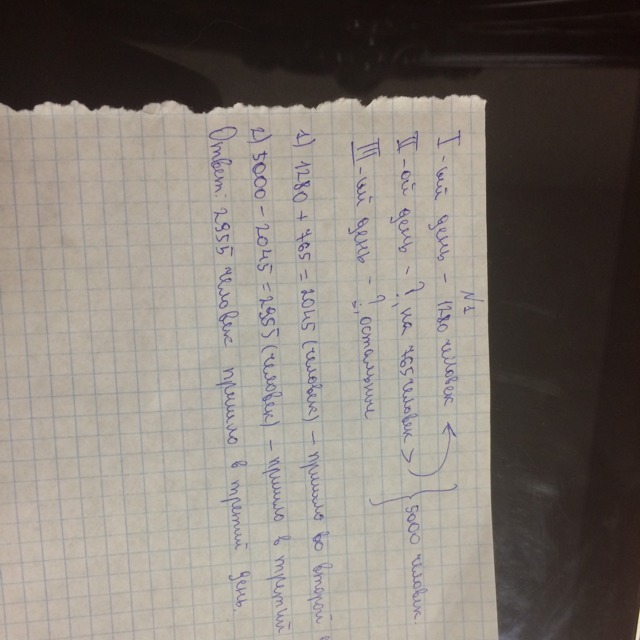 №1
I-ый день - 1280 человек
II-ой день - ?, на 765 человек >
III-ий день - ?, остальные
5000 человек
1) 1280 + 765 = 2045 (человек) - пришло во второй
2) 5000 - 2045 = 2955 (человек) - пришло в третий
Ответ: 2955 человек пришло в третий день